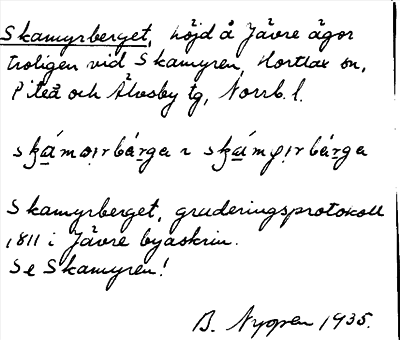 Skamyrberget, höjd å Jävre ägor
troligen vid Skamyren, Hortlax sn,
Piteå och Älvsby tg, Norrb. l.
skámørbárga ~ skámørbárga
Skamyrberget, graderingsprotokoll
1811 i Jävre byaskrin.
Se Skamyren!
B. Nygren 1935.